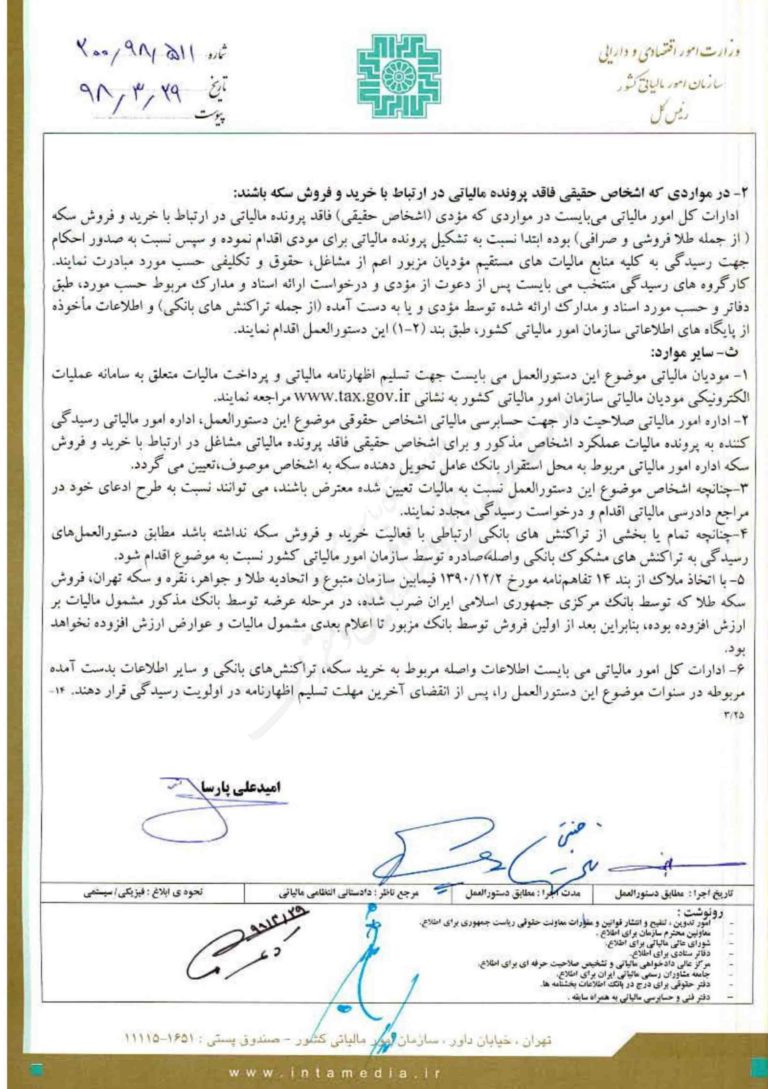 وزارت امور اقتصادی و دارایی
سازمان امور مالیاتی کشور
رئیس کل
شماره: ۲۰۰/۹۸/۵۱۱
تاریخ ۹۸/۳/۲۹
پیوست
۲- در مواردی که اشخاص حقیقی فاقد پرونده مالیاتی در ارتباط با خرید و فروش سکه باشند:
ادارات کل امور مالیاتی می‌بایست در مواردی که مؤدی (اشخاص حقیقی) فاقد پرونده مالیاتی در ارتباط با خرید و فروش سکه
( از جمله طلا فروشی و صرافی) بوده ابتدا نسبت به تشکیل پرونده مالیاتی برای مودی اقدام نموده و سپس نسبت به صدور احکام
جهت رسیدگی به کلیه منابع مالیات های مستقیم مؤدیان مزبور اعم از مشاغل، حقوق و تکلیفی حسب مورد مبادرت نمایند.
کارگروه های رسیدگی منتخب می بایست پس از دعوت از مؤدی و درخواست ارائه اسناد و مدارک مربوط حسب مورد، طبق
دفاتر و حسب مورد اسناد و مدارک ارائه شده توسط مؤدی و یا به دست آمده (از جمله تراکنش های بانکی) و اطلاعات مأخوذه
از پایگاه های اطلاعاتی سازمان امور مالیاتی کشور، طبق بند (۲-۱) این دستورالعمل اقدام نمایند.
ث- سایر موارد:
۱- مودیان مالیاتی موضوع این دستورالعمل می بایست جهت تسلیم اظهارنامه مالیاتی و پرداخت مالیات متعلق به سامانه عملیات
الکترونیکی مودیان مالیاتی سازمان امور مالیاتی کشور به نشانی www.tax.gov.ir مراجعه نمایند.
۲- اداره امور مالیاتی صلاحیت دار جهت حسابرسی مالیاتی اشخاص حقوقی موضوع این دستورالعمل، اداره امور مالیاتی رسیدگی
کننده به پرونده مالیات عملکرد اشخاص مذکور و برای اشخاص حقیقی فاقد پرونده مالیاتی مشاغل در ارتباط با خرید و فروش
سکه اداره امور مالیاتی مربوط به محل استقرار بانک عامل تحویل دهنده سکه به اشخاص موصوف،تعیین می گردد.
۳-چنانچه اشخاص موضوع این دستورالعمل نسبت به مالیات تعیین شده معترض باشند، می توانند نسبت به طرح ادعای خود در
مراجع دادرسی مالیاتی اقدام و درخواست رسیدگی مجدد نمایند.
۴-چنانچه تمام یا بخشی از تراکنش های بانکی ارتباطی با فعالیت خرید و فروش سکه نداشته باشد مطابق دستورالعمل‌های
رسیدگی به تراکنش های مشکوک بانکی واصله،صادره توسط سازمان امور مالیاتی کشور نسبت به موضوع اقدام شود.
۵- با اتخاذ ملاک از بند ۱۴ تفاهم‌نامه مورخ ۱۳۹۰/۱۲/۲ فیمابین سازمان متبوع و اتحادیه طلا و جواهر، نقره و سکه تهران، فروش
سکه طلا که توسط بانک مرکزی جمهوری اسلامی ایران ضرب شده، در مرحله عرضه توسط بانک مذکور مشمول مالیات بر
ارزش افزوده بوده، بنابراین بعد از اولین فروش توسط بانک مزبور تا اعلام بعدی مشمول مالیات و عوارض ارزش افزوده نخواهد
بود.
۶- ادارات کل امور مالیاتی می بایست اطلاعات واصله مربوط به خرید سکه، تراکنش‌های بانکی و سایر اطلاعات بدست آمده
مربوطه در سنوات موضوع این دستورالعمل را، پس از انقضای آخرین مهلت تسلیم اظهارنامه در اولویت رسیدگی قرار دهند. ۱۴-
۳/۲۵
امیدعلی پارسا
تاریخ اجرا : مطابق دستورالعمل
مدت اجرا : مطابق دستورالعمل
مرجع ناظر : دادستانی انتظامی مالیاتی
نحوه ی ابلاغ : فیزیکی/ سیستمی
رونوشت :
- امور تدوین ، تنقیح و انتشار قوانین و مقررات معاونت حقوقی ریاست جمهوری برای اطلاع.
- معاونین محترم سازمان برای اطلاع.
- شورای عالی مالیاتی برای اطلاع.
- دفاتر ستادی برای اطلاع.
- مرکز عالی دادخواهی مالیاتی و تشخیص صلاحیت حرفه ای برای اطلاع.
- جامعه مشاوران رسمی مالیاتی ایران برای اطلاع.
- دفتر حقوقی برای درج در بانک اطلاعات بخشنامه ها.
- دفتر فنی و حسابرسی مالیاتی به همراه سابقه .
۹۸/۳/۲۹
تهران ، خیابان داور ، سازمان امور مالیاتی کشور - صندوق پستی : ۱۶۵۱-۱۱۱۱۵
www.intamedia.ir